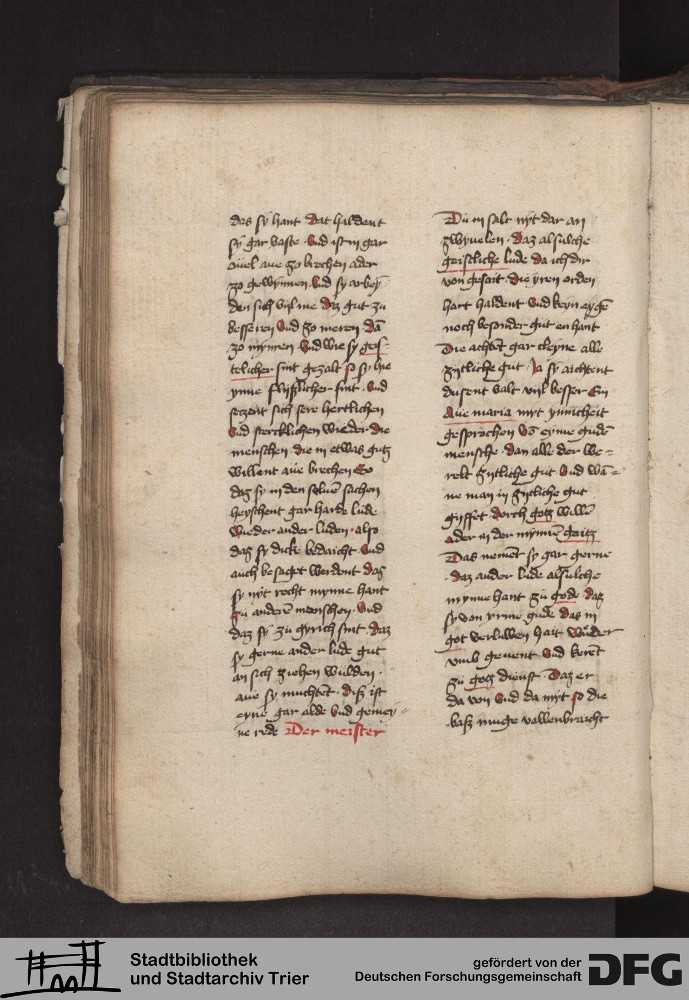 des sy hant Dat haldent
sy gar vaste Vnd ist in gar
ouel aue zo brechen ader
zo gewynnen Vnd sy arbey
den sich vyl me diz gut zu
besseren Vnd zo meren Dā
zo mynren Vnd wie sy geis-
telicher sint gezalt so sy hie
ynne flyßlicher sint Vnd
setzent sich sere hertlichen
Vnd sterclichen wieder die
menschen die in etwas gutz
willent aue brechen So
daz sy in den seluē sachen
heyschent gar harde lude
wieder ander luden also
daz sy dicke bedaicht Vnd
auch besaget werdent daz
sy nyt recht mynne hant
zu anderē menschen Vnd
daz sy zu gyrich sint Daz
sy gerne ander lude gut
an sich ziehen wulden
aue sy muchtēt Diß ist
eyne gar alde Vnd gemey
ne rede Der meister
Du in salt nyt dar an
zwyuelen Daz alsulche
geistliche lude da ich dir
von gesait die yren orden
hart haldent Vnd keyn eygē
noch besonder gut en hant
Die achtēt gar cleyne alle
zytliche gut Ja sy aichtent
dusent valt vyl besser Ein
Aue maria myt ynnicheit
gesprochen Vō eyme gudē
mensche dan alle der we-
relt zytliche gut Vnd wā-
ne man in zytliche gut
gyffet dorch gotz willē
ader in der mynnē gaitz
Das nemēt sy gar gerne
daz ander lude alsulche
mynne hant zu gode daz
sy von yrme gude das in
got verluwen hait wieder
vmb geuent Vnd kerēt
zu gotz dienst Daz er
da von Vnd da myt so die
baß muge vollenbraicht
Stadtbibliothek
und Stadtarchiv Trier
gefördert von der
Deutschen Forschungsgemeinschaft
DFG